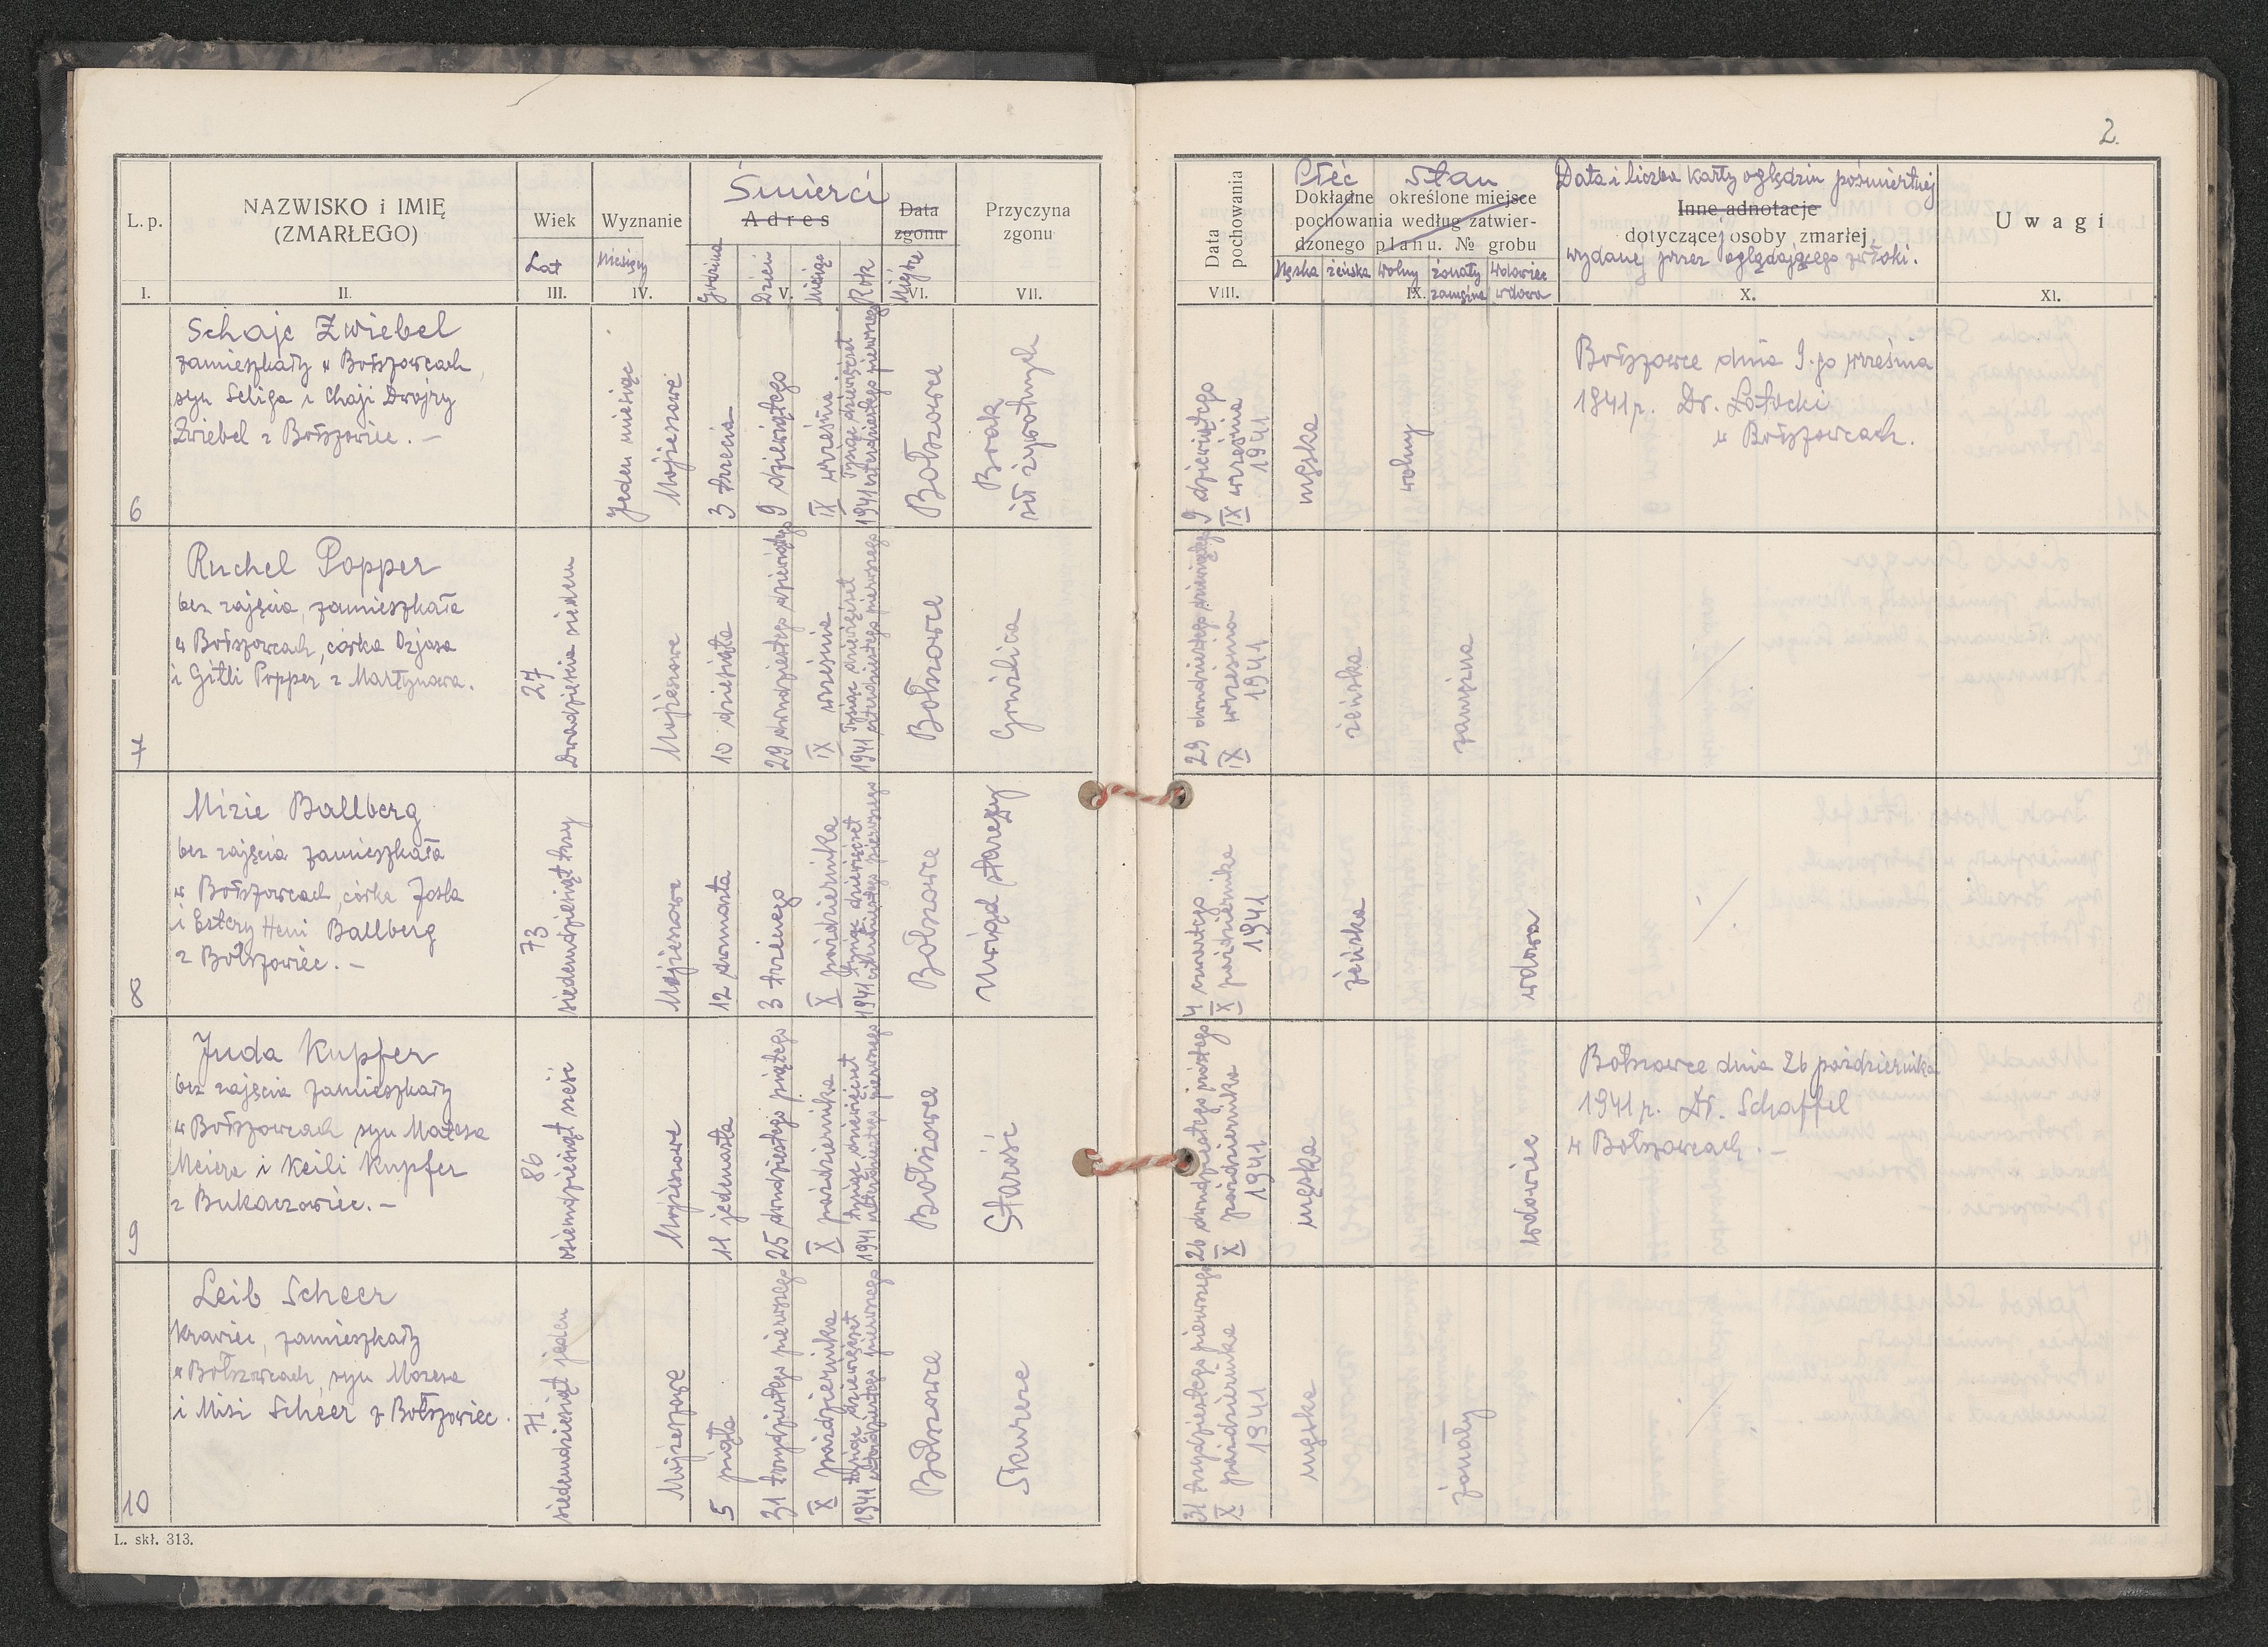 2.
L. p.
NAZWISKO i IMIĘ
(ZMARŁEGO)
Wiek
Lat
Wyznanie
Miesięcy
Śmierci
Adres
Godzina
Dzień
Miesiąc
Rok
Data
zgonu
Miejsce
Przyczyna
zgonu
I.
II.
III.
IV.
V.
VI.
VII.
Data
pochowania
Płeć Stan
Dokładne określone miejsce
pochowania według zatwier-
dzonego planu. № grobu
Męska
żeńska
wolny
żonaty
zamężna
wdowiec
wdowa
Data i liczba karty oględzin pośmiertnej
Inne adnotacje
dotyczącej osoby zmarłej,
wydanej przez oglądającego zwłoki.
Uwagi
VIII.
IX.
X.
XI.
6
Schaje Zwiebel
zamieszkały w Bołszowcach,
syn Seliga i Chaji Dwojry
Zwiebel z Bołszowiec. —
Jeden miesiąc
Mojżeszowe
3 trzecia
9 dziewiątego
IX września
Tysiąc dziewięćset
1941 czterdziestego pierwszego
Bołszowce
Brak
sił żywotnych
9 dziewiątego
IX września
1941
męska
wolny
Bołszowce dnia 9-go września
1941 r. Dr. Łotocki
w Bołszowcach.
7
Ruchel Popper
bez zajęcia, zamieszkała
w Bołszowcach, córka Ozjasa
i Gitli Popper z Martynowa.
27
Dwadzieścia siedem
Mojżeszowe
10 dziesiąta
29 dwudziestego dziewiątego
IX września
Tysiąc dziewięćset
1941 czterdziestego pierwszego
Bołszowce
Gruźlica
29 dwudziestego dziewiątego
IX września
1941
żeńska
zamężna
8
Mizie Ballberg
bez zajęcia zamieszkała
w Bołszowcach, córka Josla
i Estery Heni Ballberg
z Bołszowiec. —
73
siedemdziesiąt trzy
Mojżeszowe
12 dwunasta
3 trzeciego
X października
tysiąc dziewięćset
1941 czterdziestego pierwszego
Bołszowce
Uwiąd starczy
4 czwartego
X października
1941
żeńska
wdowa
9
Juda Kupfer
bez zajęcia zamieszkały
w Bołszowcach syn
Meiera i Keili Kupfer
z Bukaczowiec. —
86
osiemdziesiąt sześć
Mojżeszowe
11 jedenasta
25 dwudziestego piątego
X października
tysiąc dziewięćset
1941 czterdziestego pierwszego
Bołszowce
Starość
26 dwudziestego szóstego
X października
1941
męska
wdowiec
Bołszowce dnia 26 października
1941 r. Dr. Schaffel
w Bołszowcach. —
10
Leib Scheer
krawiec, zamieszkały
w Bołszowcach, syn Mozesa
i Misi Scheer z Bołszowiec.
71
siedemdziesiąt jeden
Mojżeszowe
5 piąta
31 trzydziestego pierwszego
X października
tysiąc dziewięćset
1941 czterdziestego pierwszego
Bołszowce
Skurcze
31 trzydziestego pierwszego
X października
1941
męska
żonaty
L. skł. 313.